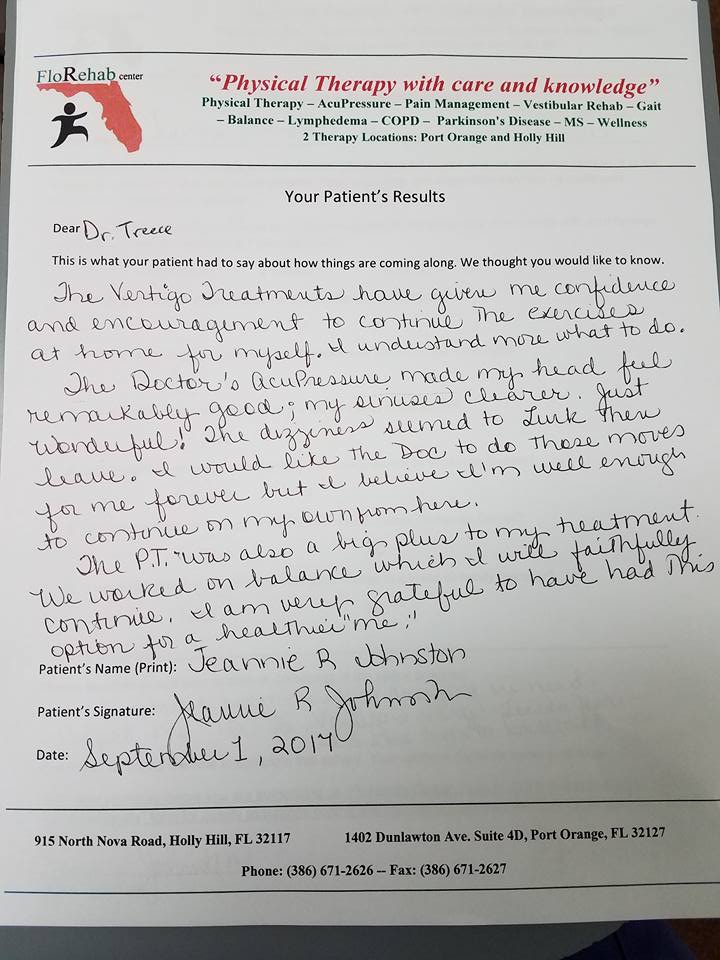 FloRehab center
"Physical Therapy with care and knowledge"
Physical Therapy – AcuPressure – Pain Management – Vestibular Rehab – Gait
– Balance – Lymphedema – COPD – Parkinson's Disease – MS – Wellness
2 Therapy Locations: Port Orange and Holly Hill
Your Patient's Results
Dear Dr. Treece
This is what your patient had to say about how things are coming along. We thought you would like to know.
The Vertigo Treatments have given me confidence
and encouragement to continue the exercises
at home for myself. I understand more what to do.
The Doctor's AcuPressure made my head feel
remarkably good; my sinuses clearer. Just
Wonderful! The dizziness seemed to Lurk then
leave. I would like the Doc to do those moves
for me forever but I believe I'm well enough
to continue on my own from here.
The P.T. was also a big plus to my treatment.
We worked on balance which I will faithfully
continue. I am very grateful to have had This
option for a healthier "me."
Patient's Name (Print): Jeannie R Johnston
Patient's Signature: Jeannie R Johnston
Date: September 1, 2017
915 North Nova Road, Holly Hill, FL 32117 1402 Dunlawton Ave. Suite 4D, Port Orange, FL 32127
Phone: (386) 671-2626 -- Fax: (386) 671-2627